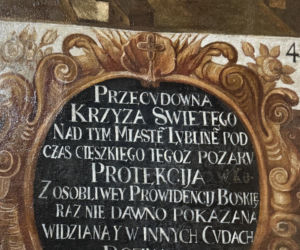 PRZECVDOWNA
KRZYZA SWIETEGO
NAD TYM MIASTĘ LVBLINĘ POD
CZAS CIESZKIEGO TEGOZ POZARV
PROTEKCIJA
Z OSOBLIWEY PROWIDENCIJ BOSKIĘ
RAZ NIE DAWNO POKAZANA
WIDZIANA Y W INNYCH CVDACH
4